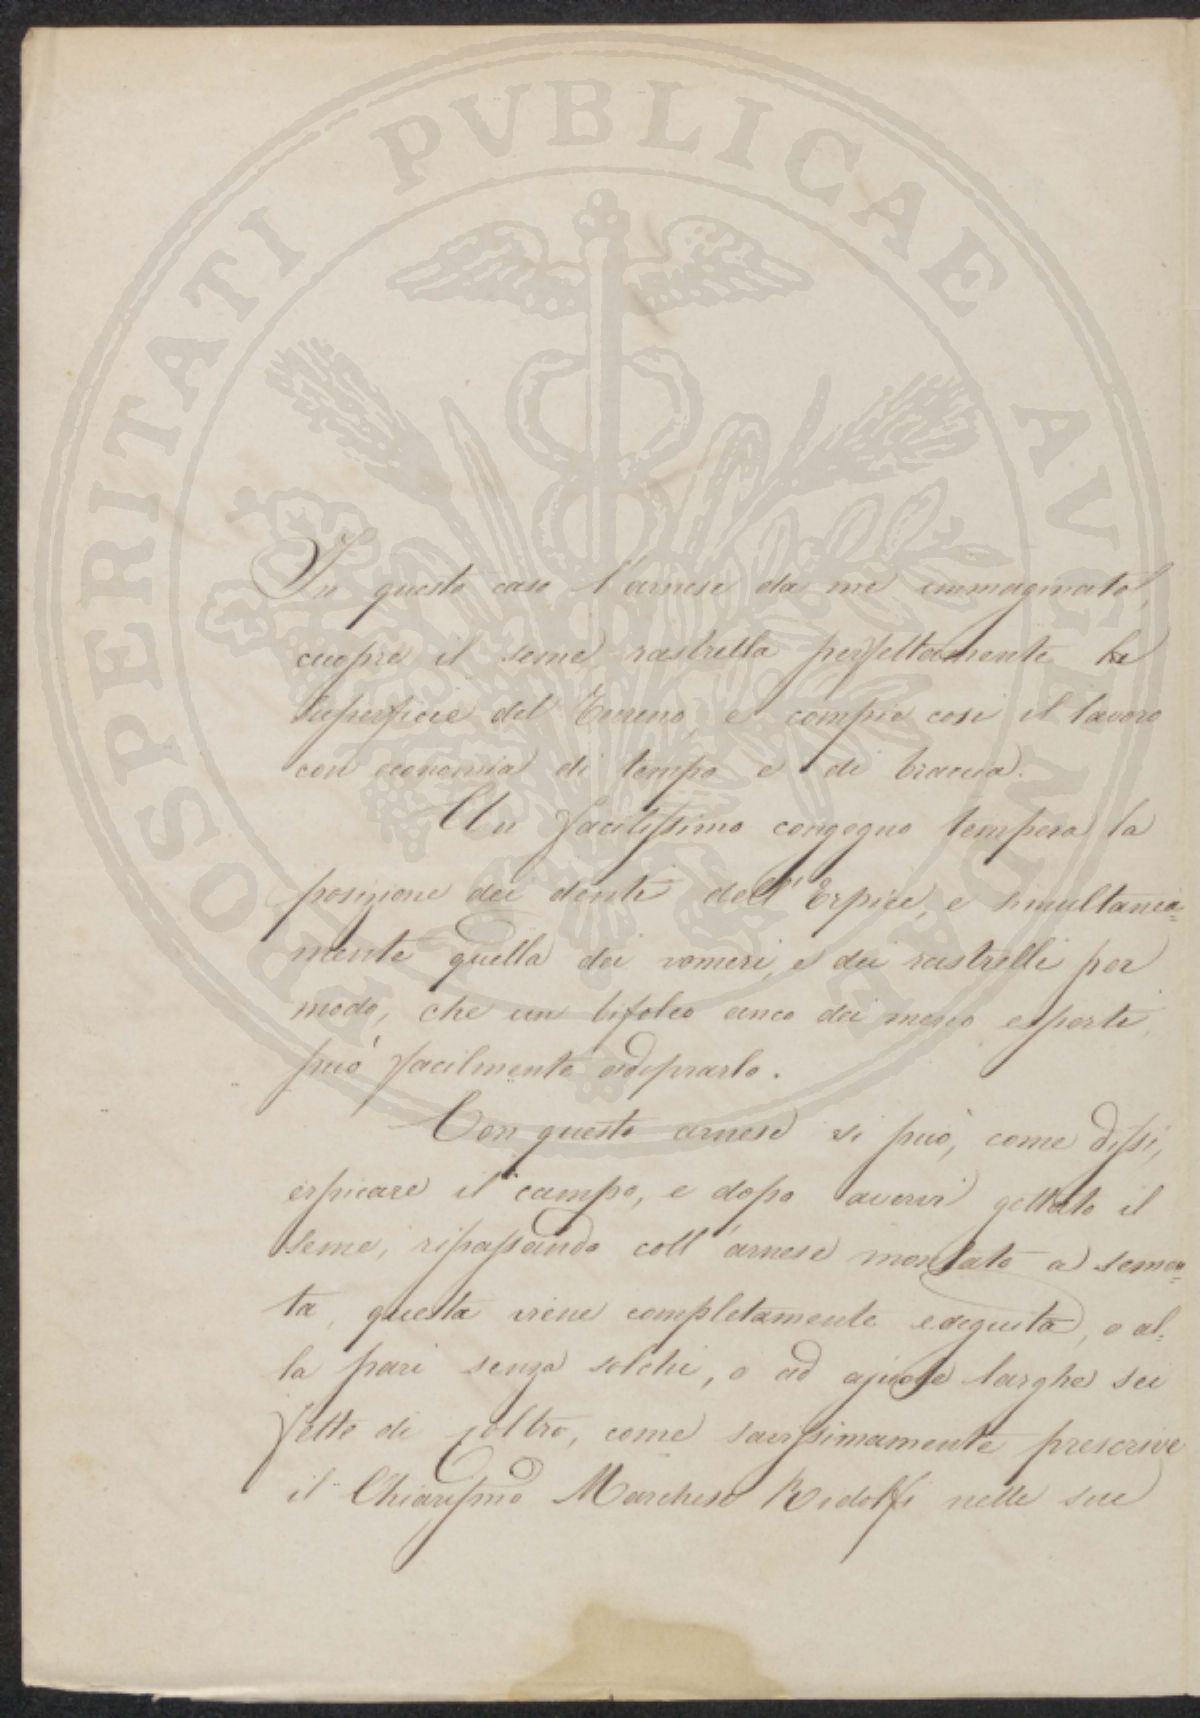 PROSPERITATI PVBLICAE AVGENDAE
In questo caso l'arnese da me immaginato,
cuopre il seme rastrella perfettamente la
superficie del Terreno, e compie così il lavoro
con economia di tempo e di braccia.
Un facilissimo congegno tempera la
posizione dei denti dell'Erpice, e simultanea=
mente quella dei vomeri, e dei rastrelli per
modo, che un bifolco anco dei meno esperti,
può facilmente adoprarlo.
Con questo arnese si può, come dissi,
erpicare il campo, e dopo avervi gettato il
seme, ripassando coll'arnese montato a semen=
ta, questa viene completamente eseguita, o al=
la pari senza solchi, o ad ajuole larghe sei
sette di, come savissimamente prescrive
il Chiarissmo Marchese Ridolfi nelle sue